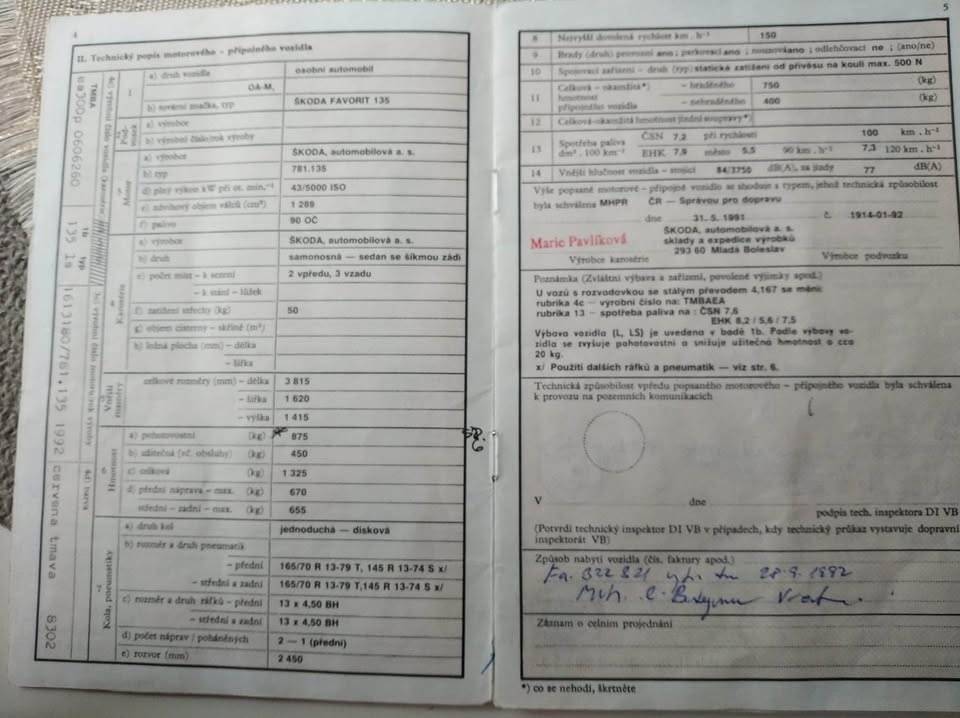 4
II. Technický popis motorového - přípojného vozidla
1
a) druh vozidla
osobní automobil
OA-M₁
b) tovární značka, typ
ŠKODA FAVORIT 135
a) výrobce
b) výrobní číslo/rok výroby
Motor
a) výrobce
ŠKODA, automobilová a. s.
b) typ
781.135
d) plný výkon kW při ot. min.⁻¹
43/5000 ISO
e) zdvihový objem válců (cm³)
1 289
f) palivo
90 OČ
Karosérie
a) výrobce
ŠKODA, automobilová a. s.
b) druh
samonosná — sedan se šikmou zádí
c) počet míst - k sezení
2 vpředu, 3 vzadu
- k stání - lůžek
f) zatížení střechy (kg)
50
g) objem cisterny - skříně (m³)
h) ložná plocha (mm) - délka
- šířka
Vnější rozměry
celkové rozměry (mm) - délka
3 815
- šířka
1 620
- výška
1 415
Hmotnost
a) pohotovostní (kg)
875
b) užitečná (vč. obsluhy) (kg)
450
c) celková (kg)
1 325
d) přední náprava - max. (kg)
670
střední - zadní - max. (kg)
655
Kola, pneumatiky
a) druh kol
jednoduchá — disková
b) rozměr a druh pneumatik
- přední
165/70 R 13-79 T, 145 R 13-74 S x/
- střední a zadní
165/70 R 13-79 T, 145 R 13-74 S x/
c) rozměr a druh ráfků - přední
13 x 4,50 BH
- střední a zadní
13 x 4,50 BH
d) počet náprav / poháněných
2 — 1 (přední)
e) rozvor (mm)
2 450
TMBA
1b typ
4d) barva
135 ls
1613180/781.135 1992
cervena tmava 8302
5
8 Nejvyšší dovolená rychlost km . h⁻¹
150
9 Brzdy (druh) provozní ano ; parkovací ano ; nouzová ano ; odlehčovací ne ; (ano/ne)
10 Spojovací zařízení - druh (typ) statické zatížení od přívěsu na kouli max. 500 N
11 Celková - okamžitá*) - brzděného 750 (kg)
hmotnost
přípojného vozidla - nebrzděného 400 (kg)
12 Celková-okamžitá hmotnost jízdní soupravy*)
13 Spotřeba paliva ČSN 7,2 při rychlosti 100 km . h⁻¹
dm³ . 100 km⁻¹ EHK 7,9 město 5,5 90 km . h⁻¹ 7,3 120 km . h⁻¹
14 Vnější hlučnost vozidla - stojící 84/3750 dB(A), za jízdy 77 dB(A)
Výše popsané motorové - přípojné vozidlo se shoduje s typem, jehož technická způsobilost
byla schválena MHPR ČR — Správou pro dopravu
dne 31. 5. 1991 č. 1914-01-92
Marie Pavlíková
ŠKODA, automobilová a. s.
sklady a expedice výrobků
293 60 Mladá Boleslav
Výrobce karosérie
Výrobce podvozku
Poznámka (Zvláštní výbava a zařízení, povolené výjimky apod.)
U vozů s rozvodovkou se stálým převodem 4,167 se mění:
rubrika 4c — výrobní číslo na: TMBAEA
rubrika 13 — spotřeba paliva na : ČSN 7,6
EHK 8,2 / 5,6 / 7,5
Výbava vozidla (L, LS) je uvedena v bodě 1b. Podle výbavy vo-
zidla se zvyšuje pohotovostní a snižuje užitečná hmotnost o cca
20 kg.
x/ Použití dalších ráfků a pneumatik — viz str. 6.
Technická způsobilost vpředu popsaného motorového - přípojného vozidla byla schválena
k provozu na pozemních komunikacích
V dne
podpis tech. inspektora DI VB
(Potvrdí technický inspektor DI VB v případech, kdy technický průkaz vystavuje dopravní
inspektorát VB)
Způsob nabytí vozidla (čís. faktury apod.)
Fa. 322 821 28.9.1992
Záznam o celním projednání
*) co se nehodí, škrtněte